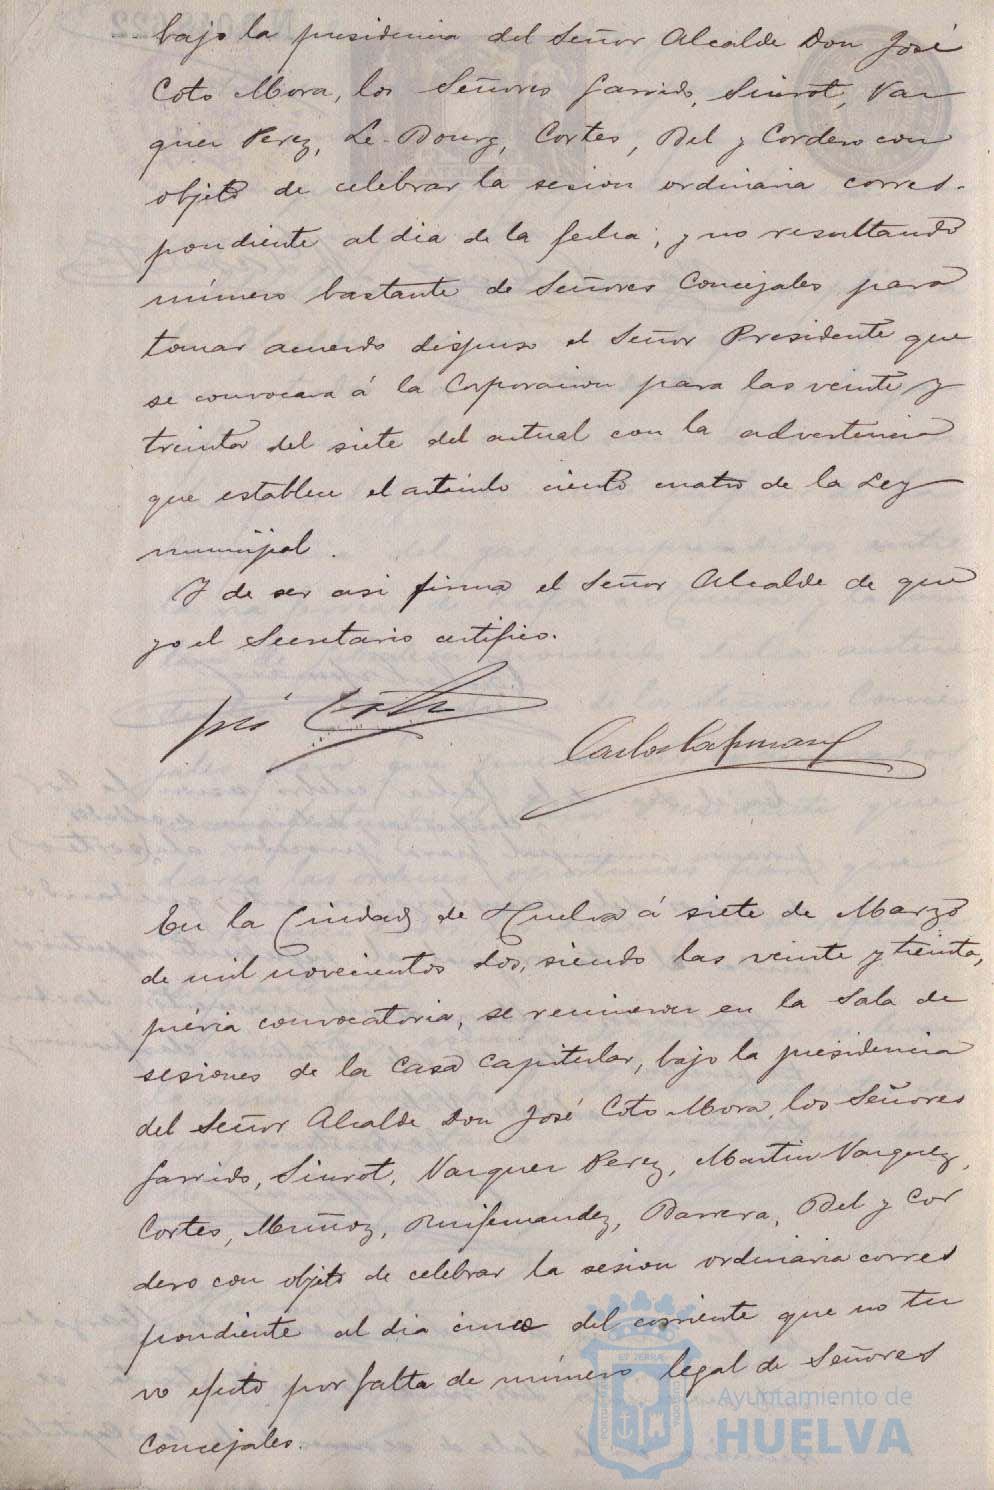 bajo la presidencia del Señor Alcalde Don José
Coto Mora, los Señores Garrido, Siurot, Vaz
quez Perez, Le-Bourg, Cortes, Bel y Cordero con
objeto de celebrar la sesion ordinaria corres-
pondiente al dia de la fecha; y no resultando
número bastante de Señores Concejales para
tomar acuerdo dispuso el Señor Presidente que
se convocara á la Corporacion para las veinte y
treinta del siete del actual con la advertencia
que establece el artículo ciento cuatro de la Ley
municipal.
Y de ser asi firma el Señor Alcalde de que
yo el Secretario certifico.
José Coto
Carlos
En la Ciudad de Huelva á siete de Marzo
de mil novecientos dos, siendo las veinte y treinta,
prévia convocatoria, se reunieron en la Sala de
sesiones de la Casa Capitular, bajo la presidencia
del Señor Alcalde Don José Coto Mora, los Señores
Garrido, Siurot, Vazquez Perez, Martin Vazquez,
Cortes, Muñoz, Ruifernandez, Barrera, Bel y Cor
dero con objeto de celebrar la sesion ordinaria corres
pondiente al dia cinco del corriente que no tu
vo efecto por falta de número legal de Señores
Concejales.
Ayuntamiento de
HUELVA